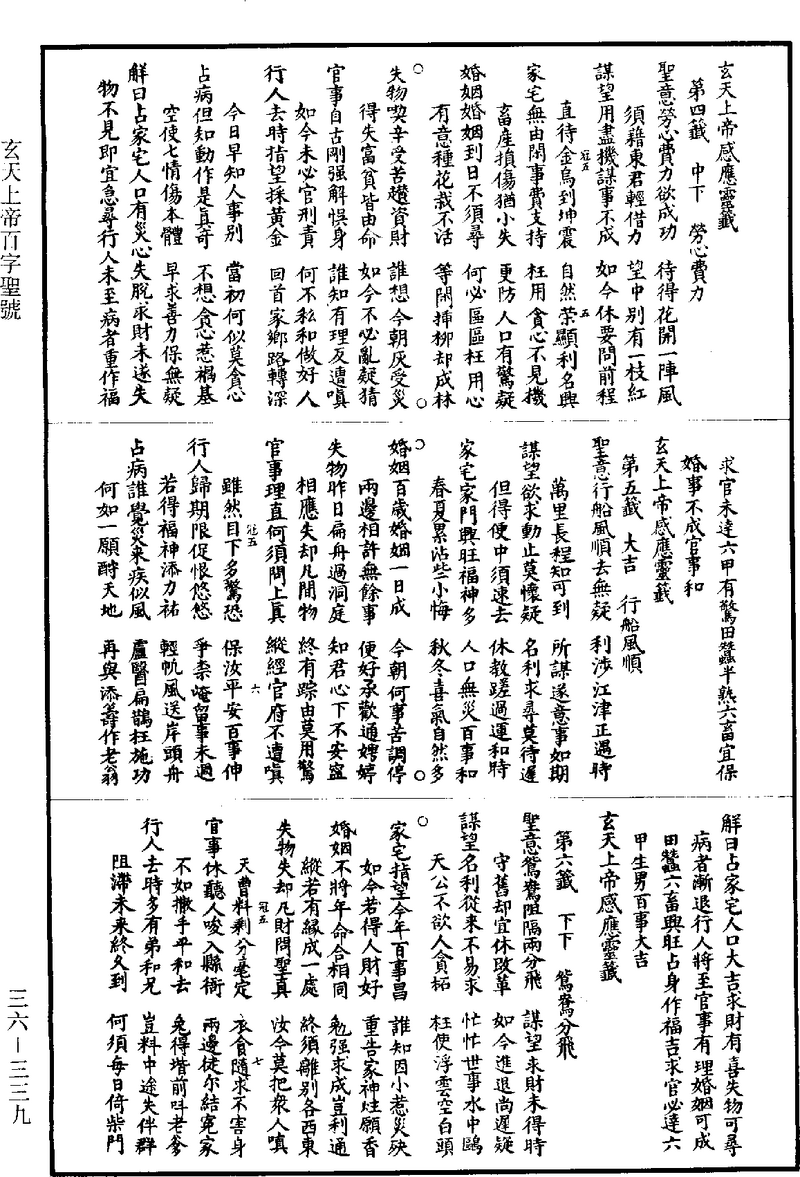 玄天上帝感應靈籤
第四籤 中下 勞心費力
聖意勞心費力欲成功 待得花開一陣風
須藉東君輕借力 望中別有一枝紅
謀望用盡機謀事不成 如今休要問前程
直待金烏到坤震 自然榮顯利名興
冠五 五
家宅無由閑事費支持 枉用貪心不見機
畜產損傷猶小失 更防人口有驚疑
婚姻婚姻到日不須尋 何必區區枉用心
有意種花栽不活 等閑插柳却成林
失物喫辛受苦趲資財 誰想今朝反受災
得失富貧皆由命 如今不必亂疑猜
官事自古剛強解悞身 誰知有理反遭嗔
如今未必官刑責 何不私和做好人
行人去時指望採黃金 回首家鄉路轉深
今日早知人事別 當初何似莫貪心
占病但知動作是真奇 不想貪心惹禍基
空使七情傷本體 早求善力保無疑
解曰占家宅人口有災心失脫求財未遂失
物不見即宜急尋行人未至病者重作福
求官未達六甲有驚田蠶半熟六畜宜保
婚事不成官事和
玄天上帝感應靈籤
第五籤 大吉 行船風順
聖意行船風順去無疑 利涉江津正遇時
萬里長程知可到 所謀遂意事如期
謀望欲求動止莫懷疑 名利求尋莫待遲
但得便中須速去 休教蹉過運和時
家宅家門興旺福神多 人口無災百事和
春夏累沾些小悔 秋冬喜氣自然多
婚姻百歲婚姻一日成 今朝何事苦調停
兩邊相許無餘事 便好承歡通娉婷
失物昨日扁舟過洞庭 知君心下不安寧
相應失却凡間物 終有踪由莫用驚
官事理直何須問上真 縱經官府不遭嗔
冠五 六
雖然目下多驚恐 保汝平安百事伸
行人歸期限促恨悠悠 爭柰峻留事未週
若得福神添力祐 輕帆風送岸頭舟
占病誰覺災來疾似風 盧醫扁鵲枉施功
何如一願酧天地 再與添壽作老翁
解曰占家宅人口大吉求財有喜失物可尋
病者漸退行人將至官事有理婚姻可成
田蠶六畜興旺占身作福吉求官必達六
甲生男百事大吉
玄天上帝感應靈籤
第六籤 下下 鴛鴦分飛
聖意鴛鴦阻隔兩分飛 謀望求財未得時
守舊却宜休改革 如今進退尚遲疑
謀望名利從來不易求 忙忙世事水中鷗
天公不欲人貪柘 枉使浮雲空白頭
家宅指望今年百事昌 誰知因小惹災殃
如今若得人財好 重告家神炷願香
婚姻不將年命合相同 勉强求成豈利通
縱若有緣成一處 終須離別各西東
失物失却凡財問聖真 汝今莫把衆人嗔
冠五 七
天曹料剩分毫定 衣食隨求不害身
官事休聽人唆入縣衙 兩邊徒尔結冤家
不如撒手平和去 免得堦前呌老爹
行人去時多有弟和兄 豈料中途失伴群
阻滯未來終久到 何須每日倚柴門
玄天上帝百字聖號
三六—三三九